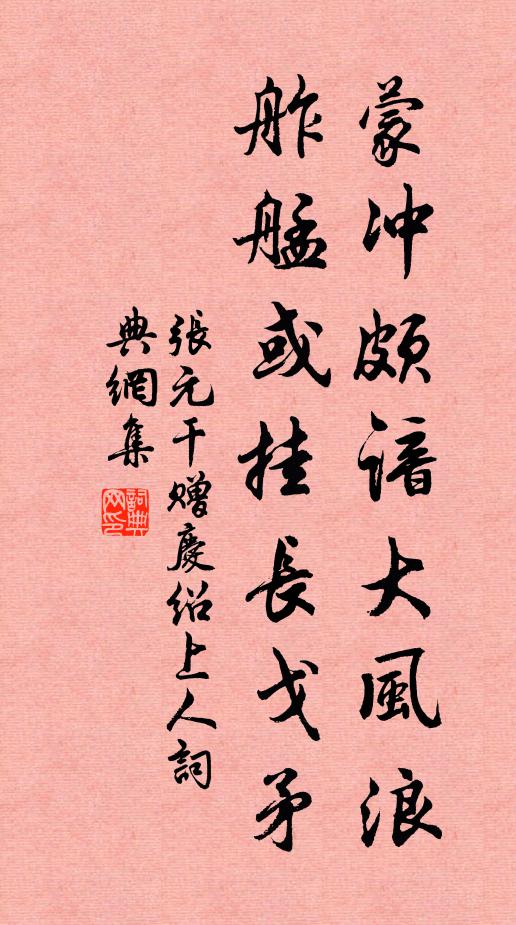 蒙冲颇谙大風浪
舴艋或挂長戈矛
張元干赠慶绍上人詞
典網集
詞典网印